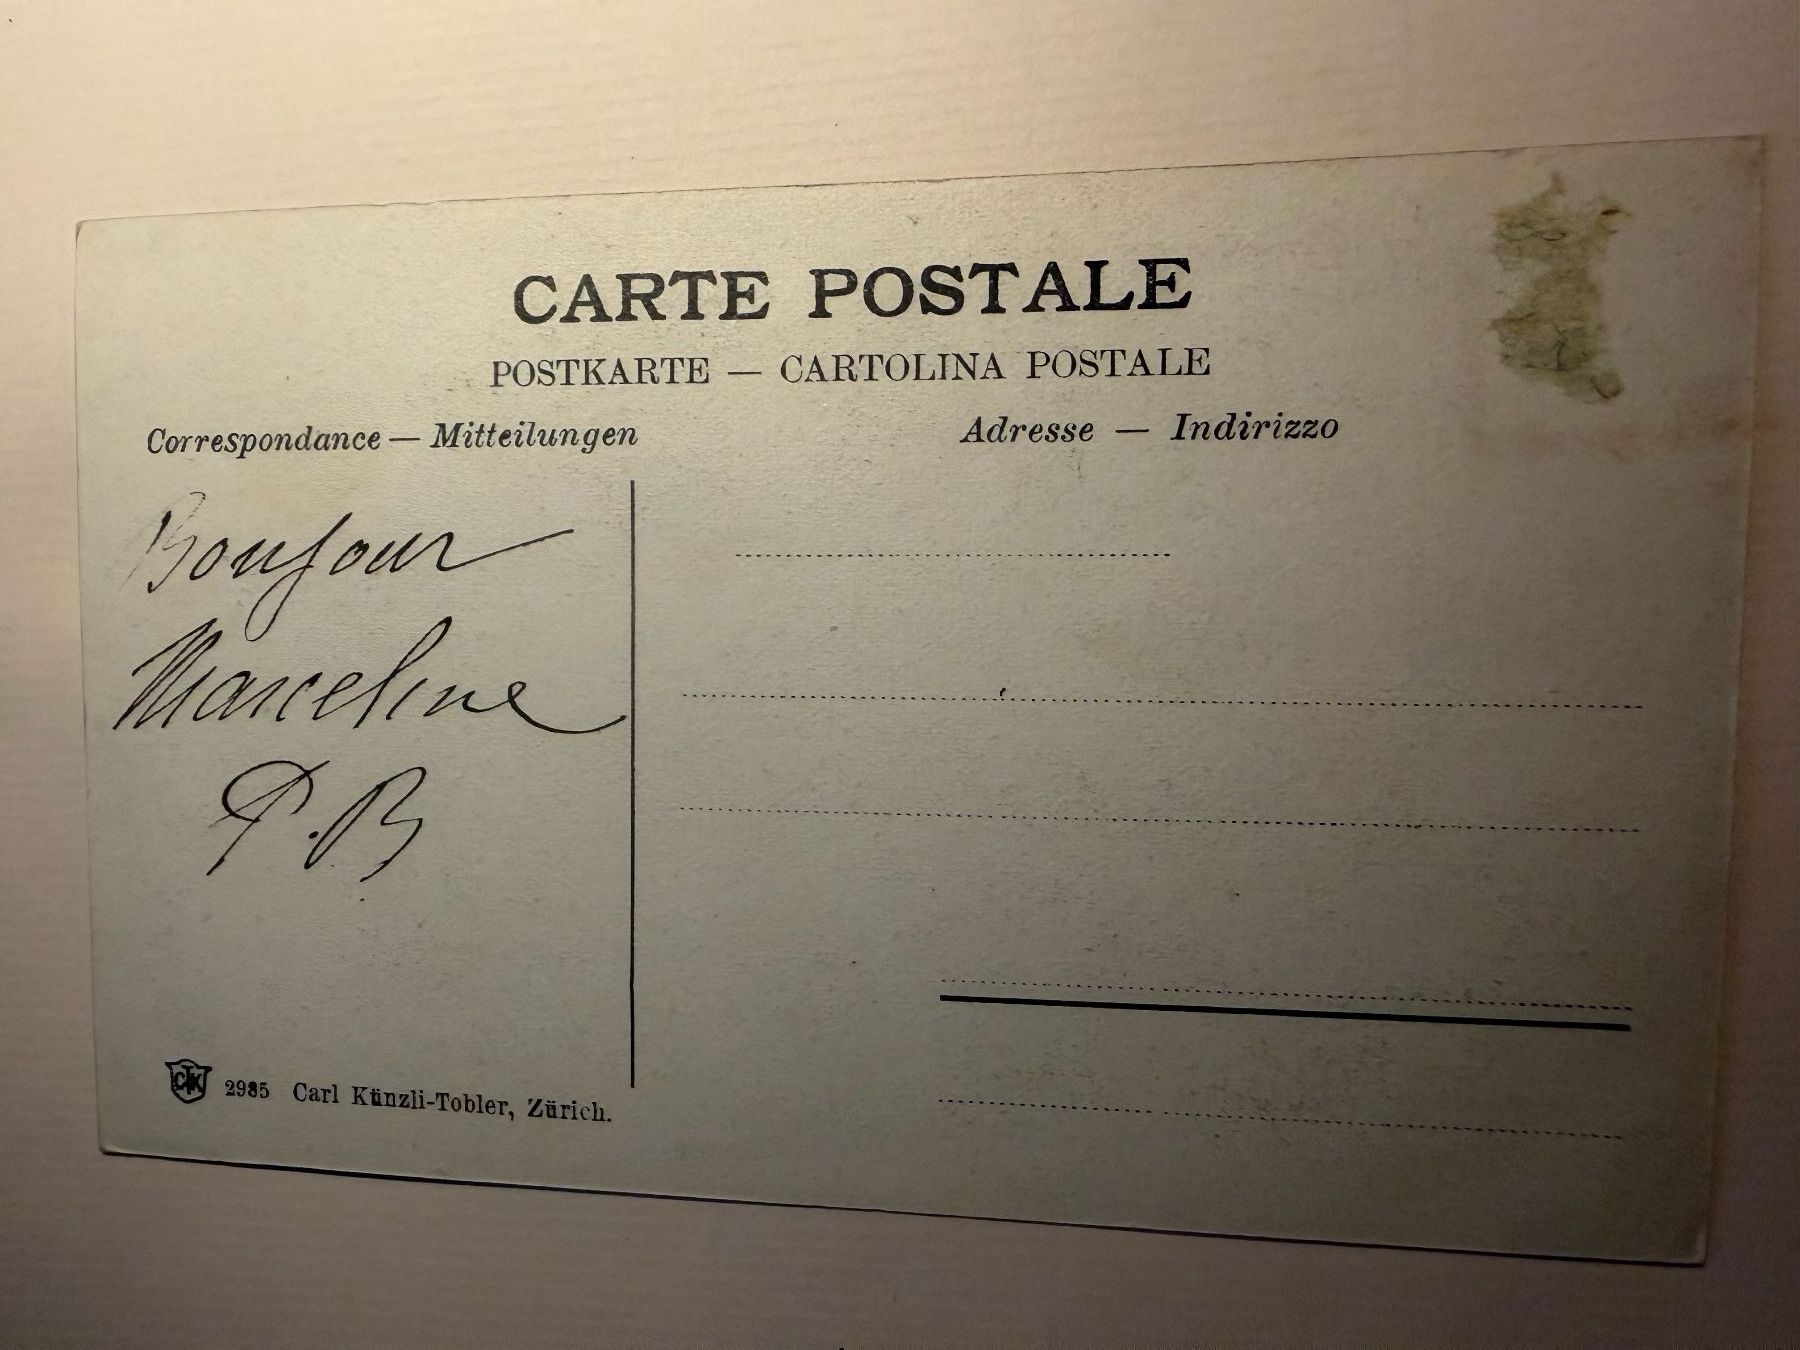 CARTE POSTALE
POSTKARTE — CARTOLINA POSTALE
Correspondance — Mitteilungen
Adresse — Indirizzo
Bonjour
Marceline
P.B
CTK 2985 Carl Künzli-Tobler, Zürich.